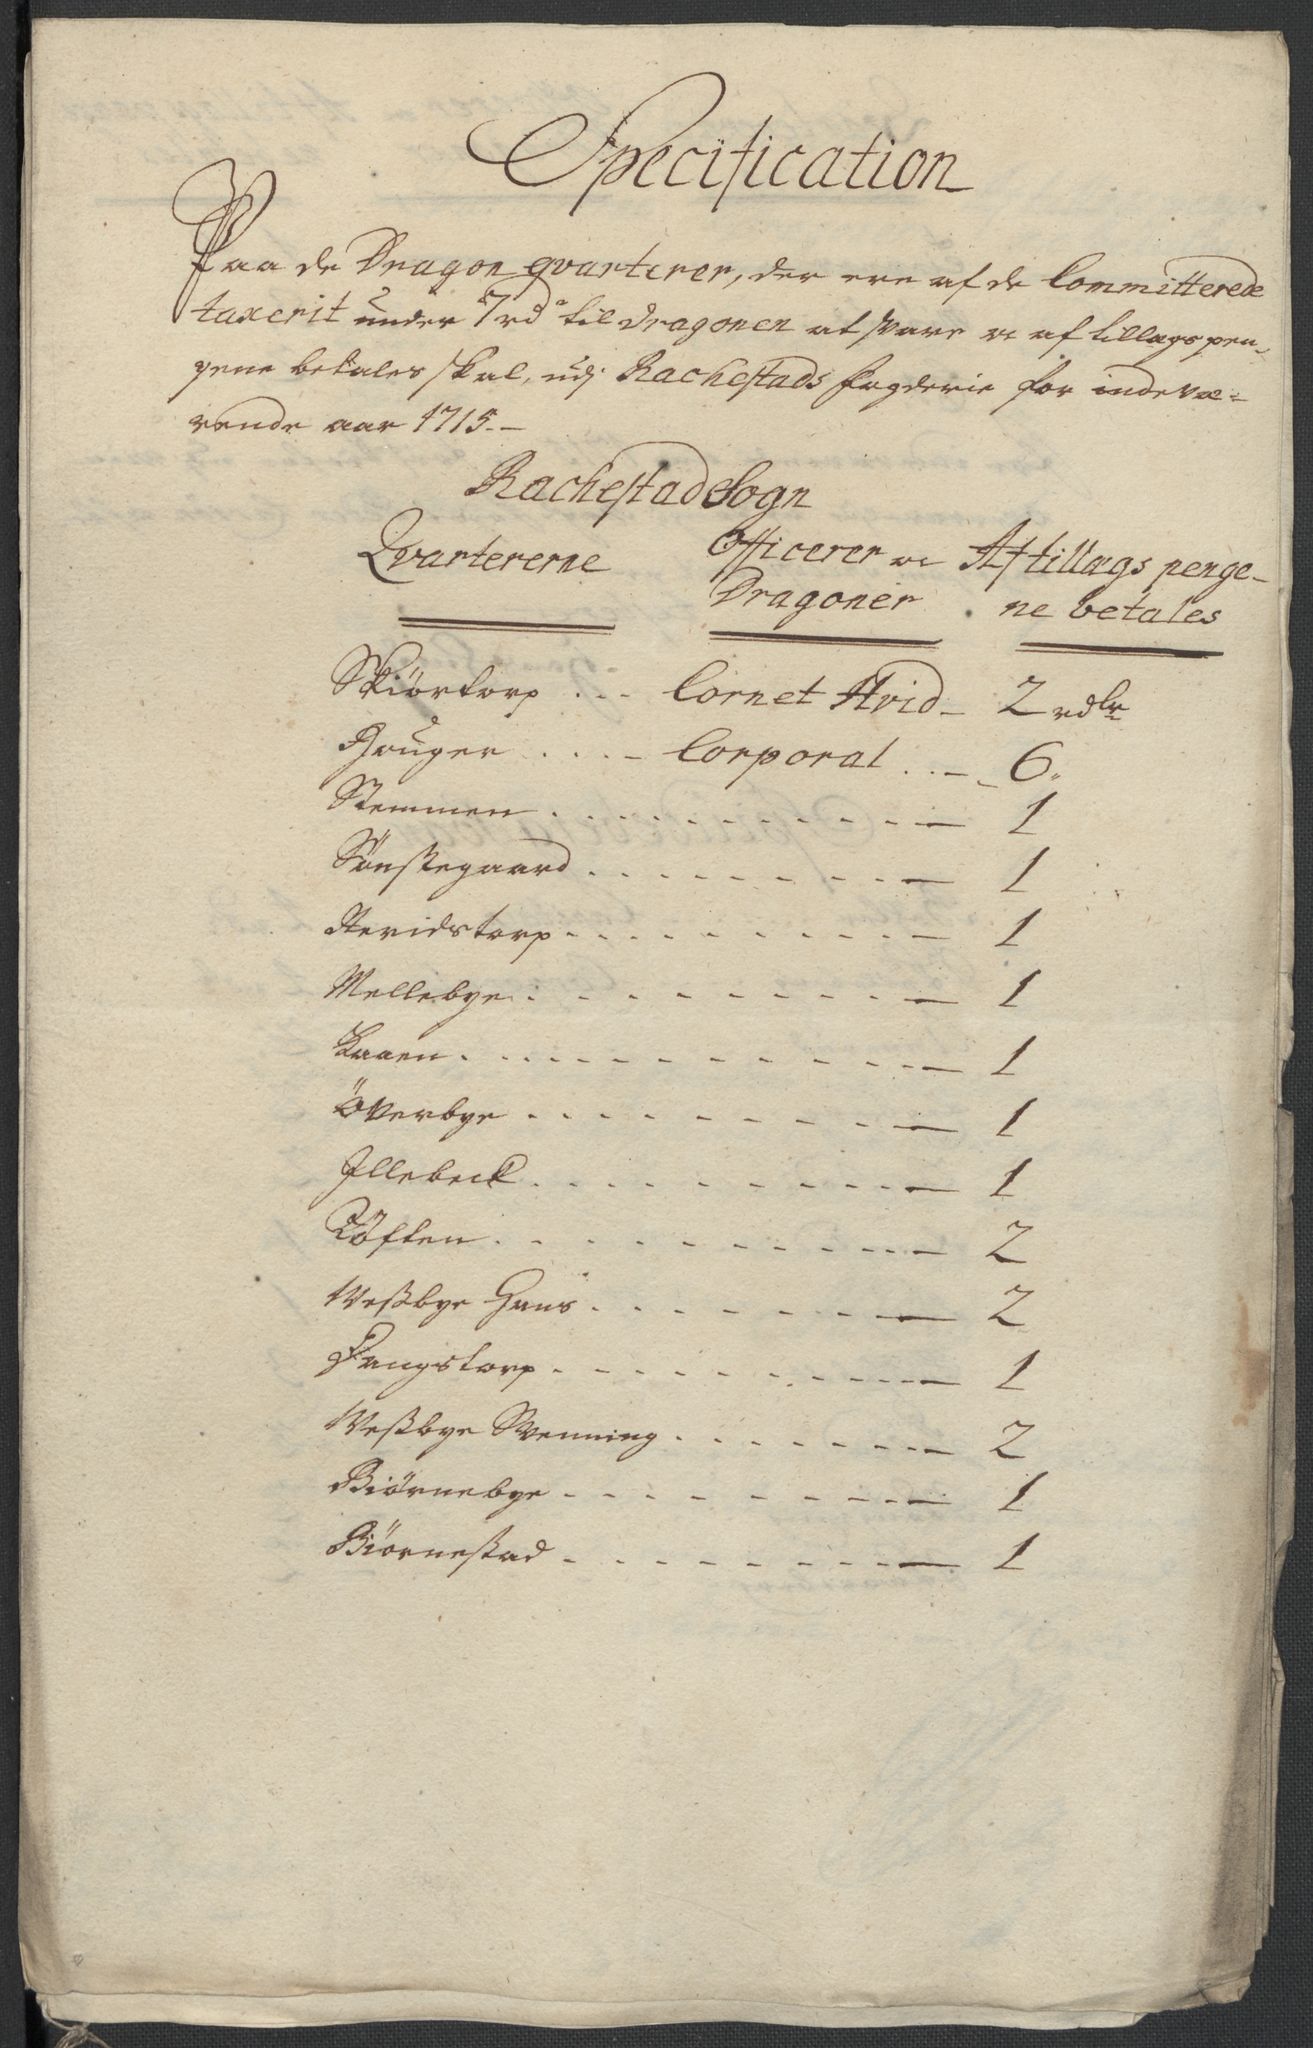 Specification
Paa de Dragon qvarterer, der ere af de Committerede
taxerit under 7 rd til dragonen at svare oc af tillagspen-
gene betales skal, udj Rachestads fogderie for indevæ-
rende aar 1715.-
Rachestad Sogn
Qvartererne Officerer oc Af tillags penge-
Dragoner ne betales
Skiörtorp . . - Cornet Hvid - 2 rdlr
Gruger . . . - Corporal . . - 6
Stemmen . . . 1
Sönstegaard . . . 1
Revidstorp . . . 1
Mellebye . . . 1
Kaaen . . . 1
Överbye . . . 1
Illebeck . . . 2
Töften . . . 2
Westbye Hans . . . 2
Fangstorp . . . 1
Westbye Svenning . . . 2
Biörnebye . . . 1
Biörnestad . . . 1